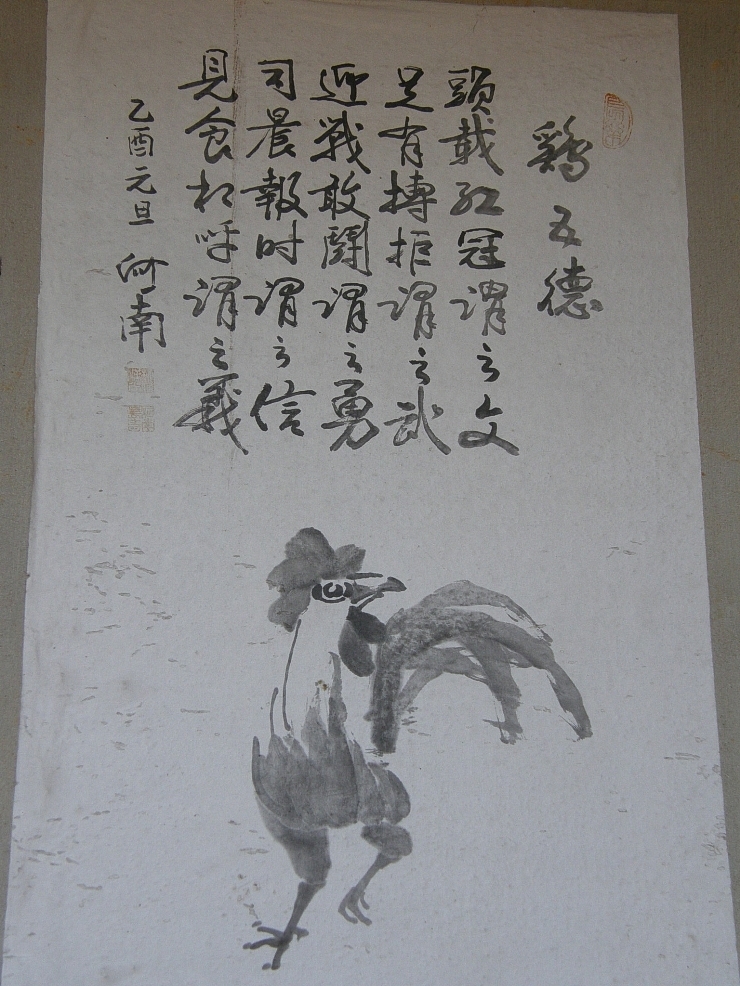 鷄五德
頭載紅冠謂之文
足有搏拒謂之武
迎戦敢鬪謂之勇
司晨報时謂之信
見食相呼謂之義
乙酉元旦 南